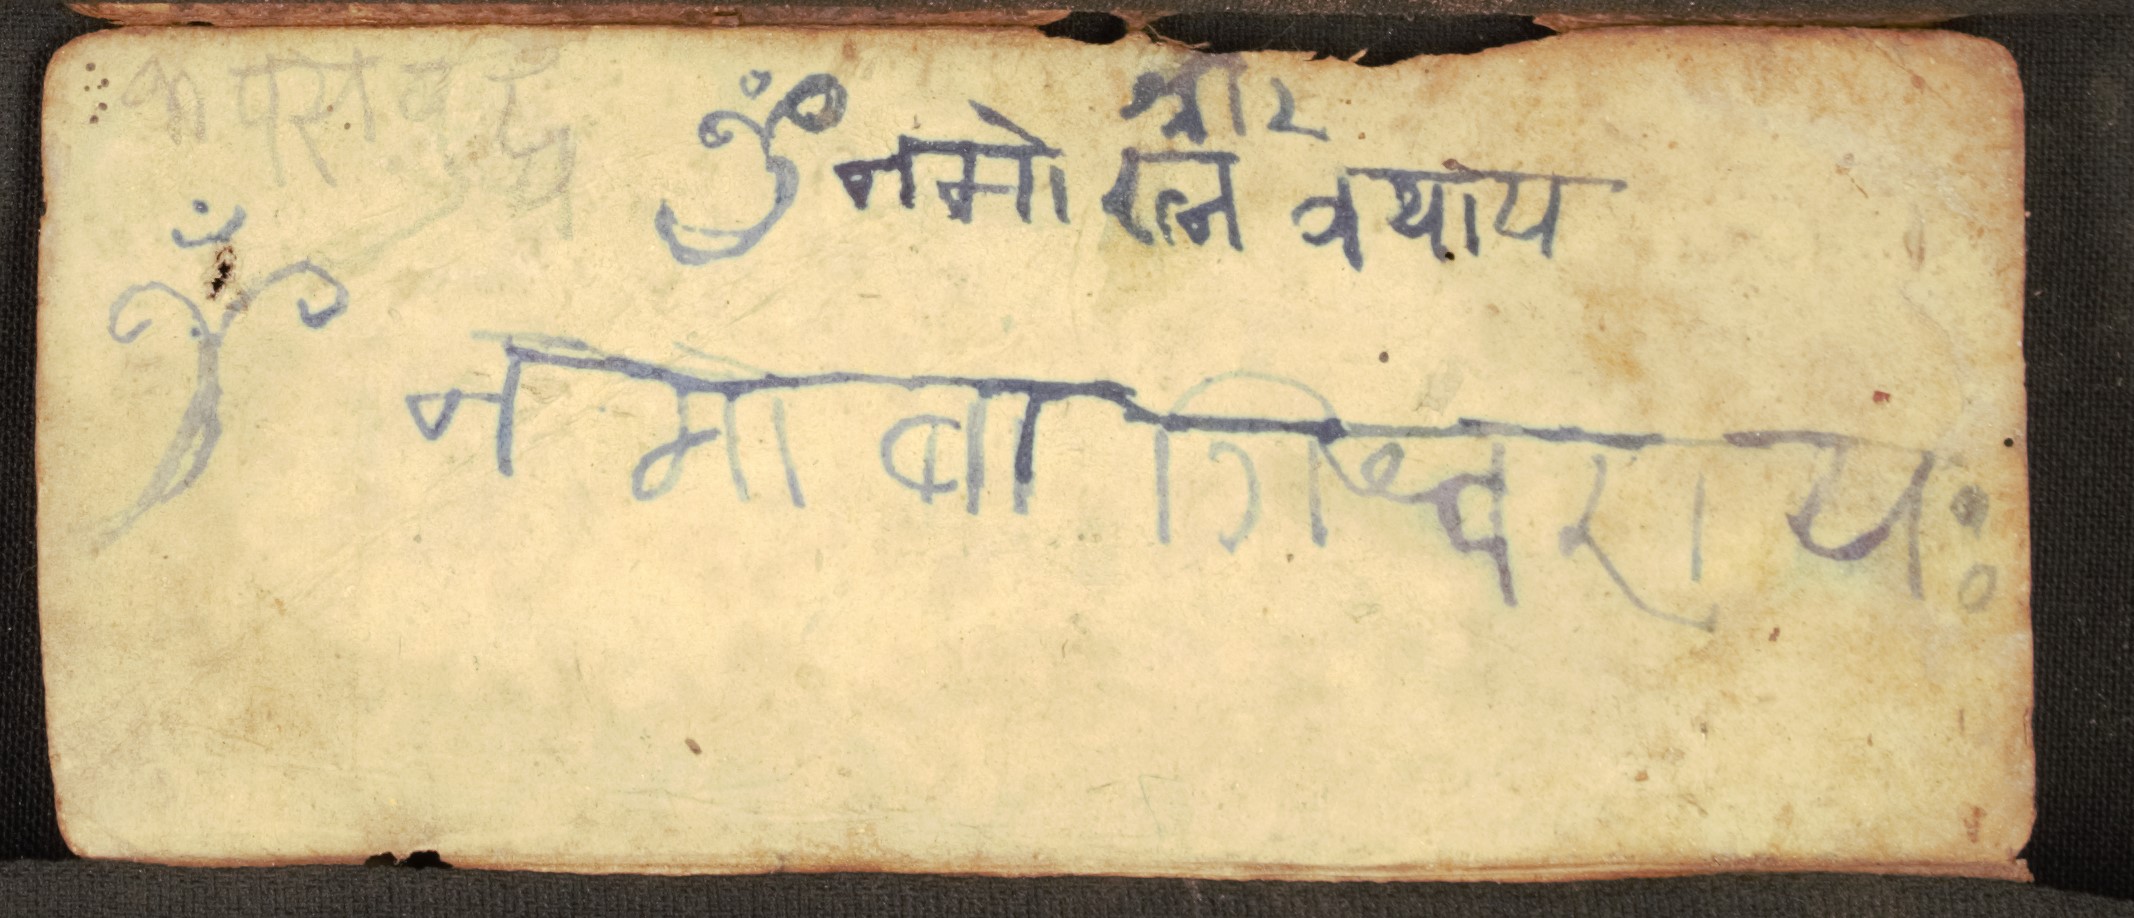 श्री २
ॐ नमो रत्न त्रयाय
ॐ नमो बागिश्वराय: